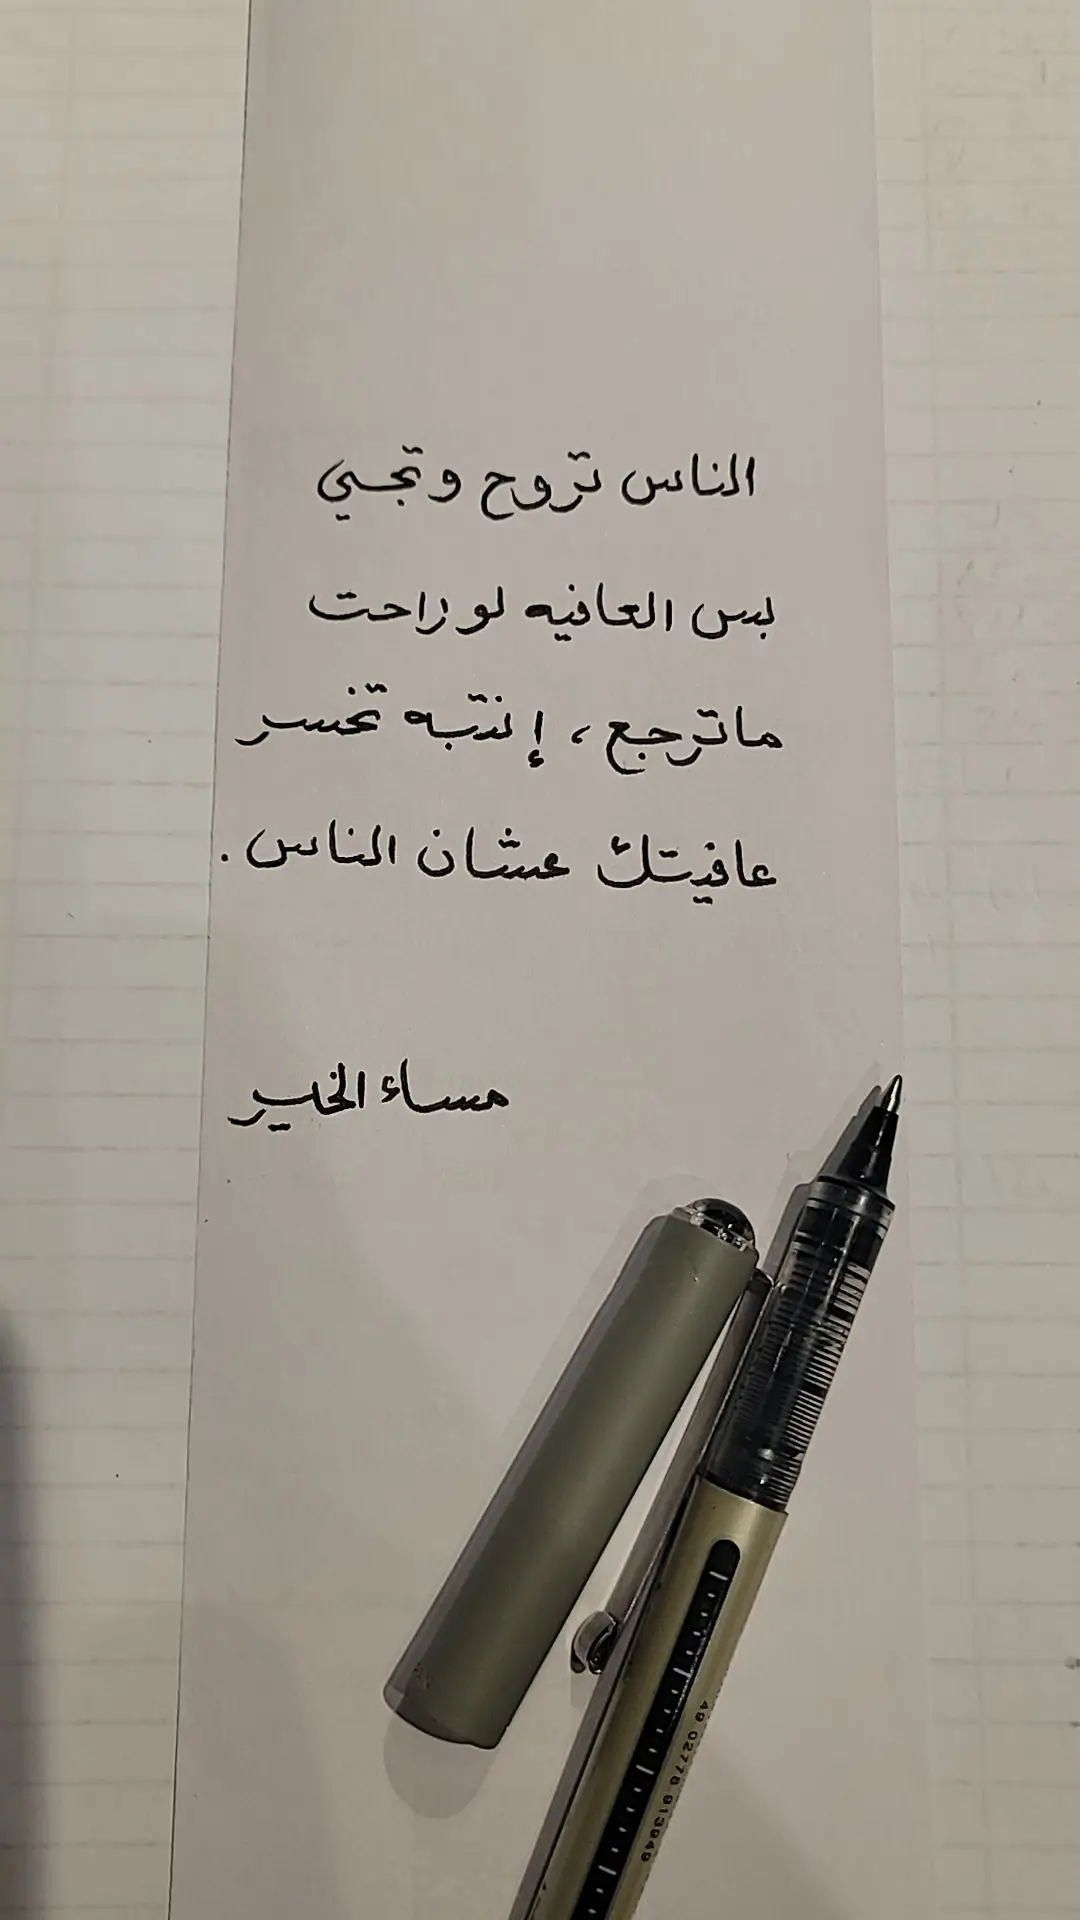 الناس تروح وتجي
بس العافيه لو راحت
ماترجع ، إنتبه تخسر
عافيتك عشان الناس .
مساء الخير
49 02778 913949